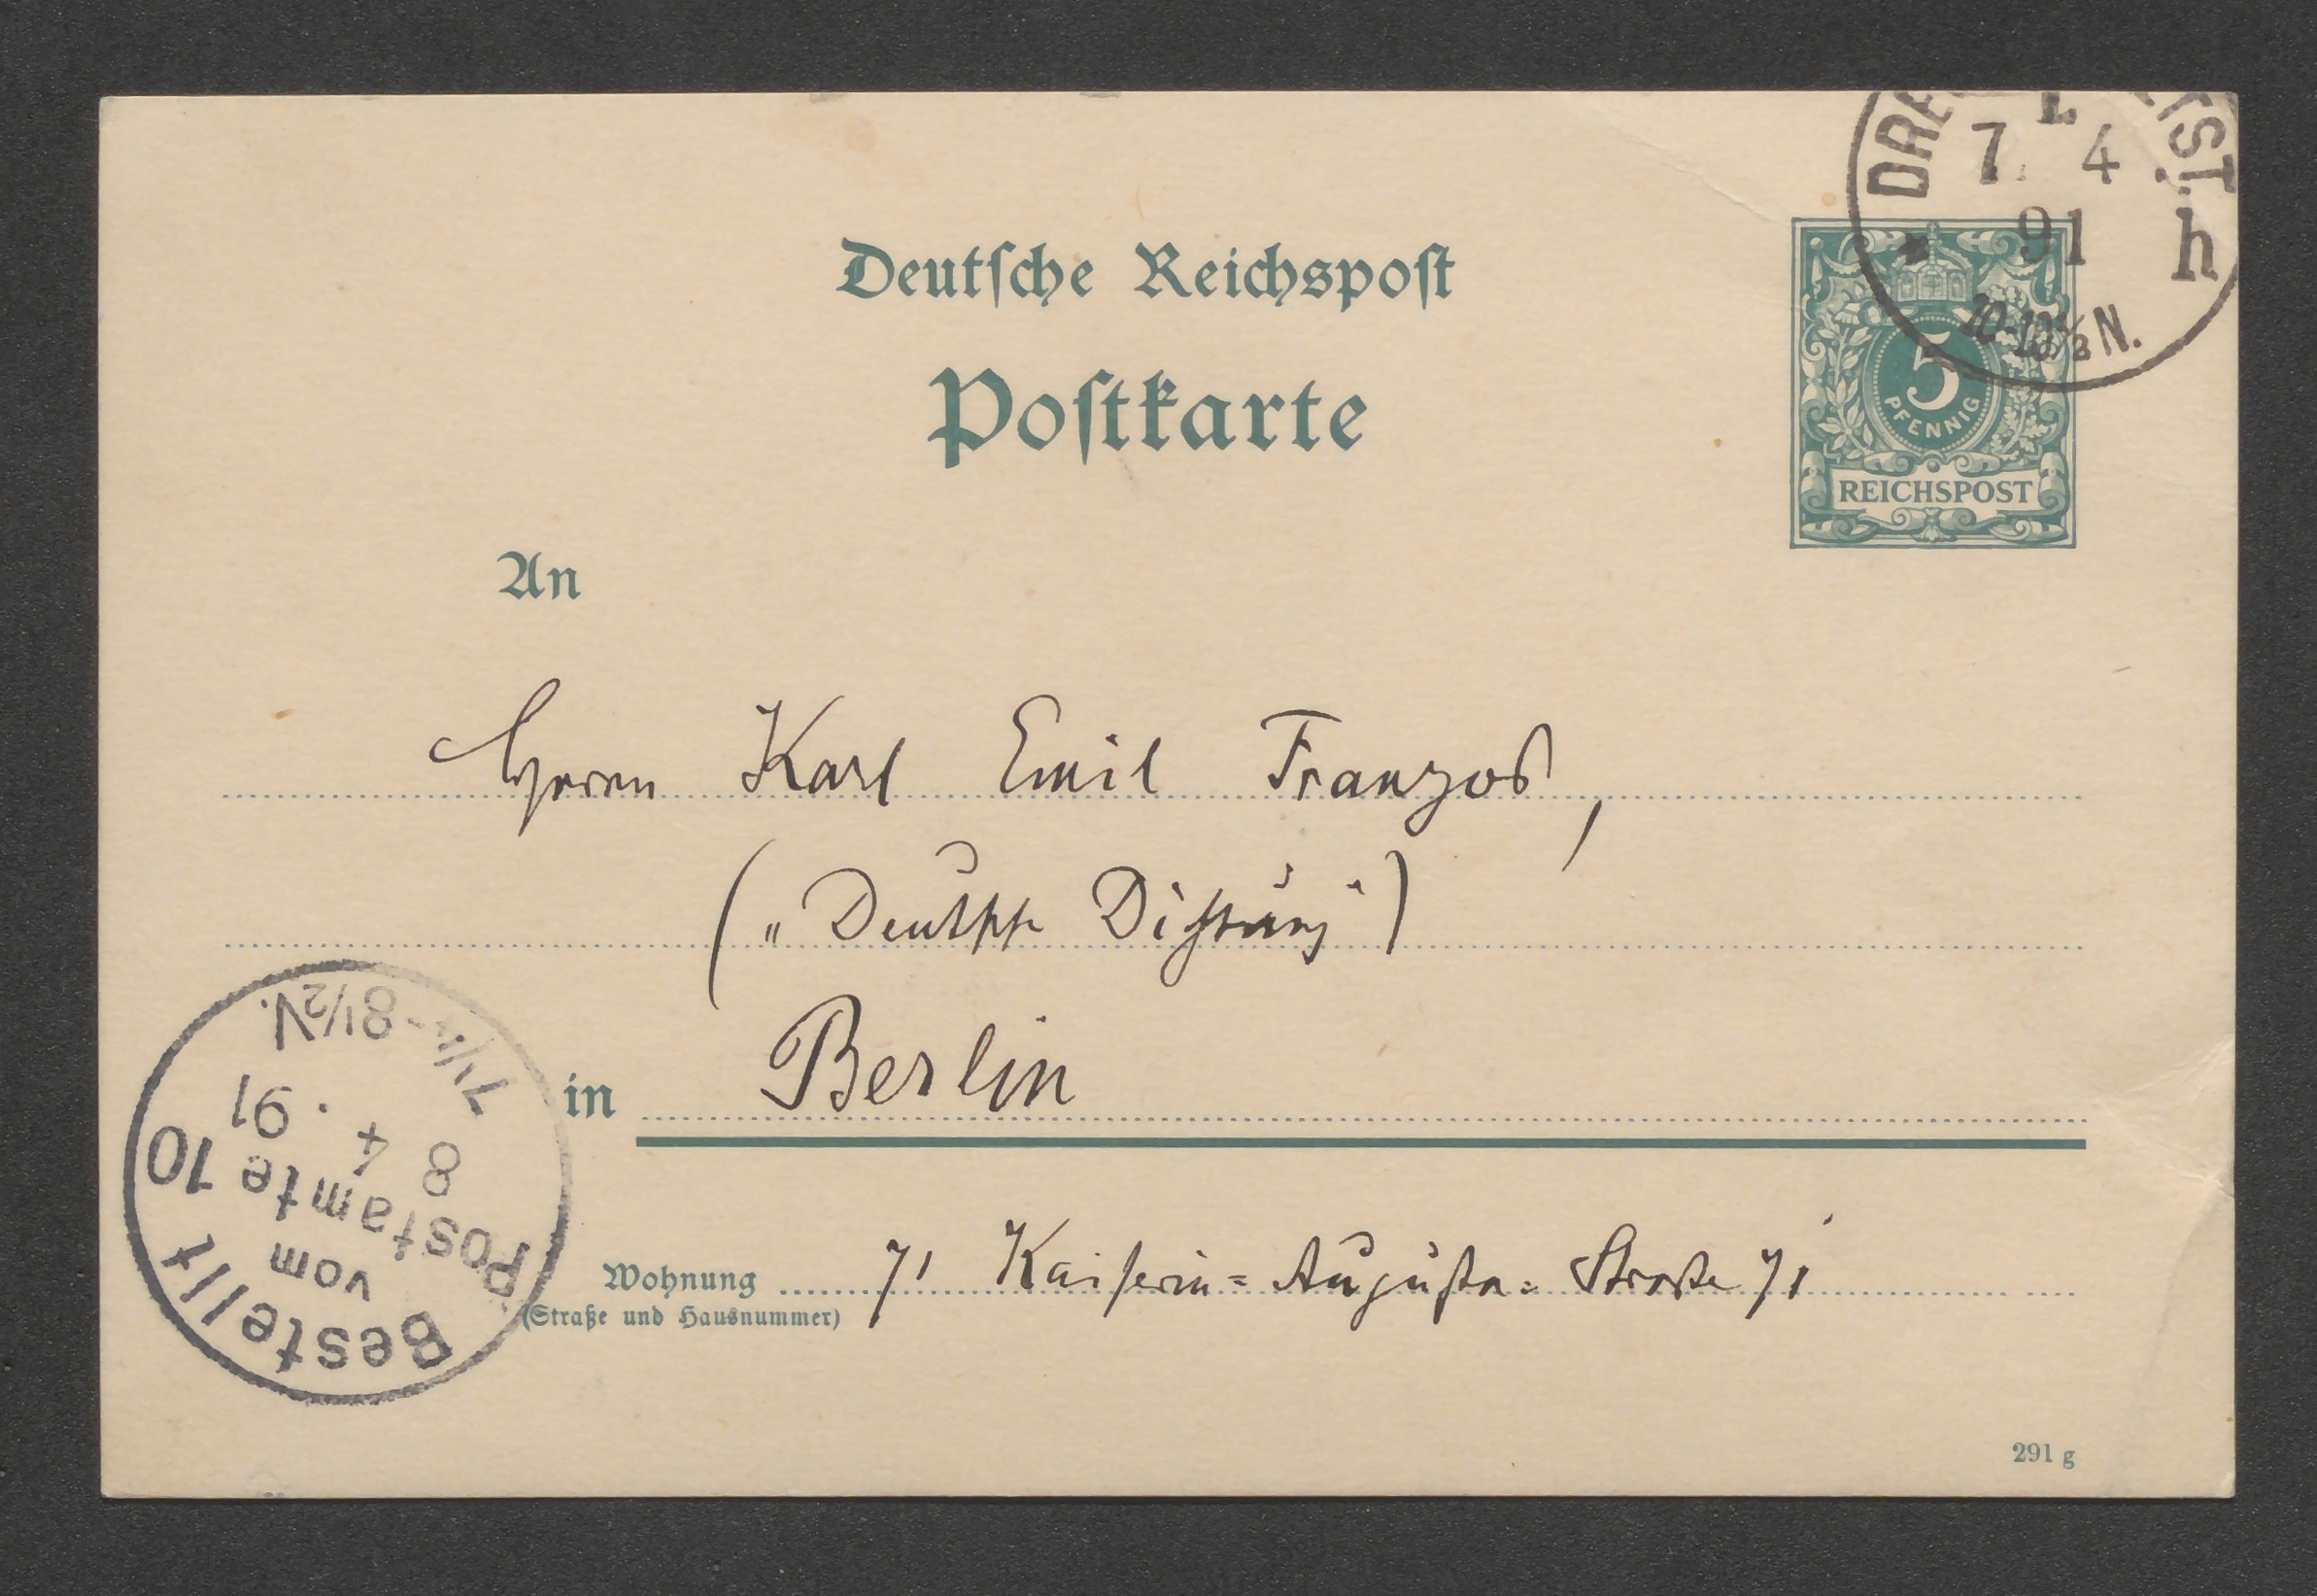 Deutsche Reichspost
Postkarte
7. 4
91 h
10-10½N.
5
PFENNIG
REICHSPOST
An
Herrn Karl Emil Franzos,
(„Deutsche Dichtung")
in Berlin
Wohnung 71 Kaiserin=Augusta=Straße 71
(Straße und Hausnummer)
Bestellt
vom
Postamte 10
8 4 . 91
7¼-8½V.
291 g